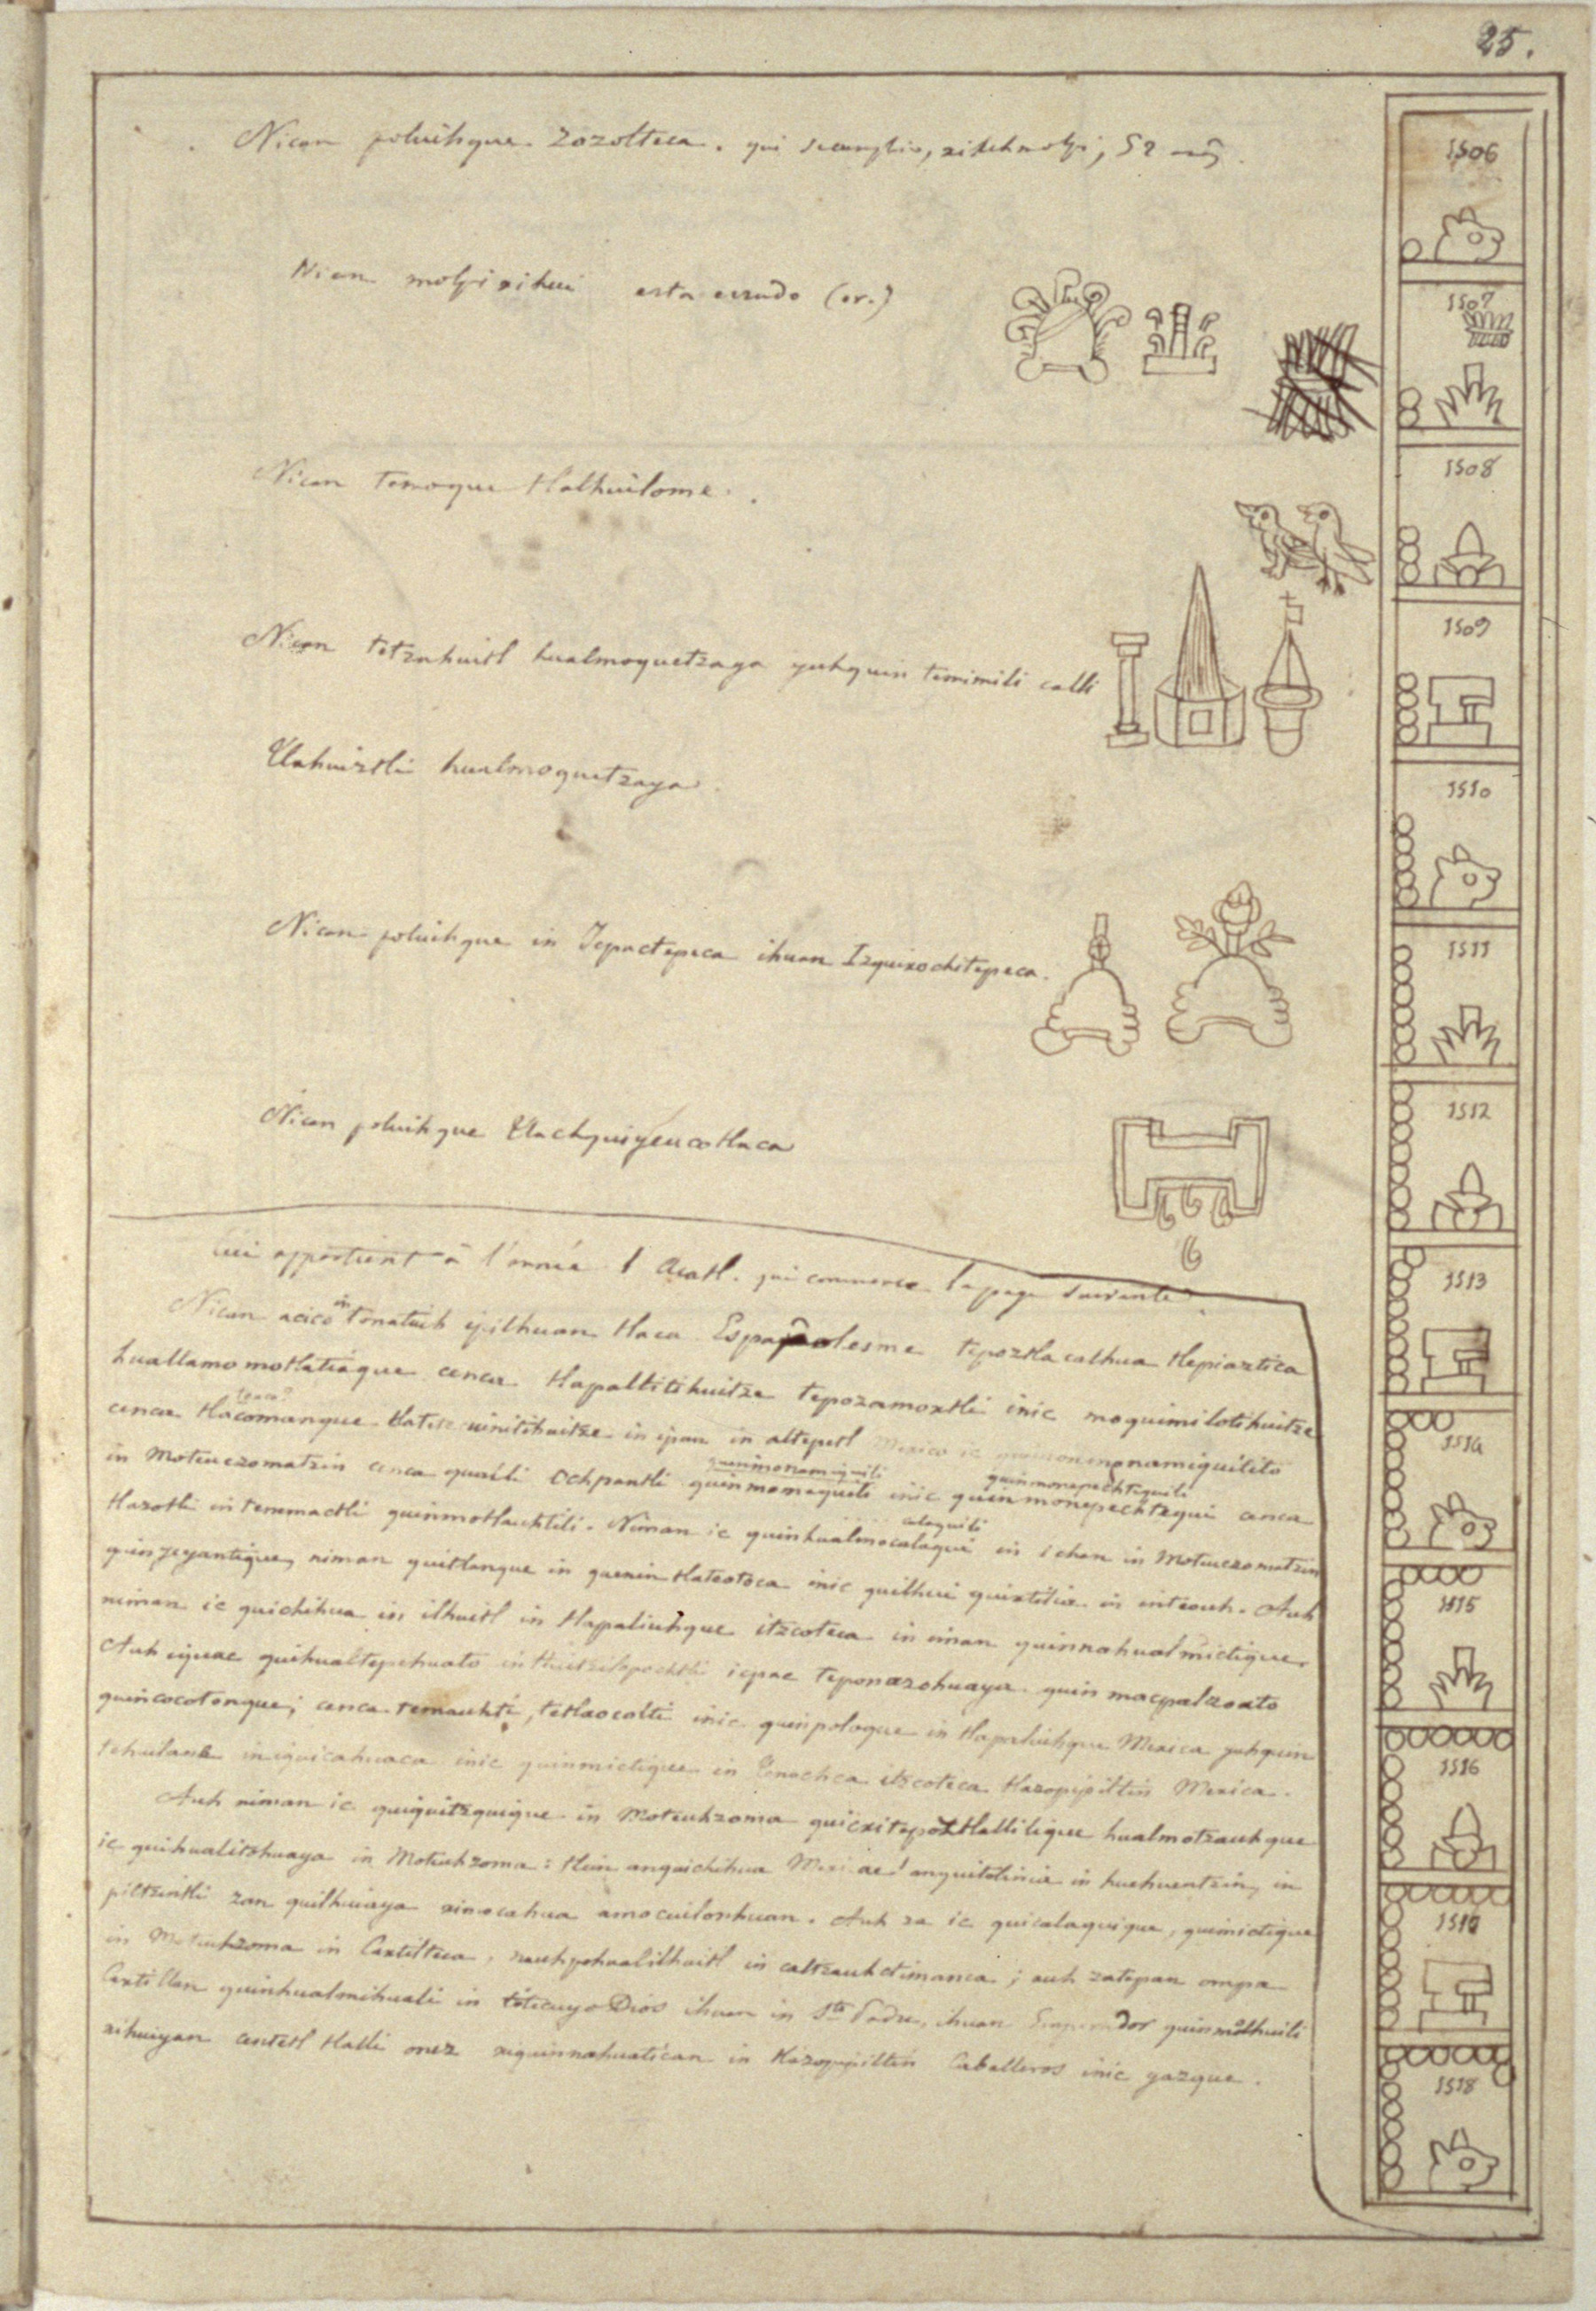 25.
Nican poliuhque Zozolteca. qui se cumplio, xiuhmolpi, 52 añ
1506
Nican molpi xihui esta errado (or.)
1507
Nican temoque tlalhuilome.
1508
Nican tetzahuitl hualmoquetzaya yuhquin temimili calli
1509
Tlahuiztli hualmoquetzaya.
1510
Nican poliuhque in Icpactepeca ihuan Izquixochitepeca.
1511
Nican poliuhque Tlachquiyauhcotlaca
1512
Ceci appartient à l'année 1 Acatl. qui commence la page suivante.
1513
Nican acico in tonatiuh ipilhuan tlaca Españolesme tepoztlacalhua tlepiaztica
huallamomotlatiaque cenca tlapaltitihuitze tepozamoxtli inic moquimilotihuitze
1514
cenca tlacomanque in ipan in altepetl Mexico ic
in Moteuczomatzin cenca qualli Ochpantli quinmonamiquili inic quinmonepechtequi cenca
quinmonamiquili quinmonepechtequili
tlazotli in tenemactli quinmotlauhtili. Niman ic quinhualmocalaqui in ichan in Moteuczomatzin
calaquili
1515
niman quitlanque in quenin tlateotoca inic quilhui quixtilia in inteouh. Auh
niman ic quichihua in ilhuitl in tlapaliuhque itzcoteca in innan quinnahualmictique.
Auh iquac quihualtepehuato in Huitzilopochtli icpac teponazohuaya quin macpalzoato
quincocotonque; cenca temauhti, tetlaocolti inic quinpoloque in tlapaliuhque Mexica yuhquin
1516
inic quinmictique in Tenochca itzcoteca tlazopipiltin Mexica.
Auh niman ic quiquitzquique in Moteuhzoma quicxitepoztlallilique hualmotzauhque
ic quihualitohuaya in Moteuhzoma: tlein anquichihua Mexicae! anquitolinia in huehuentzin, in
1517
piltzintli zan quilhuiaya xinocahua amocuilonhuan. Auh za ic quicalaquique, quimictique
in Moteuhzoma in Caxtilteca, nauhpohualilhuitl in caltzauhctimanca; auh zatepan ompa
Caxtillan quinhualmihuali in totecuyo Dios ihuan in Sto Padre, ihuan Emperador quinmolhuili
1518
xihuiyan centetl tlalli onez xiquinnahuatican in tlazopipiltin Caballeros inic yazque.